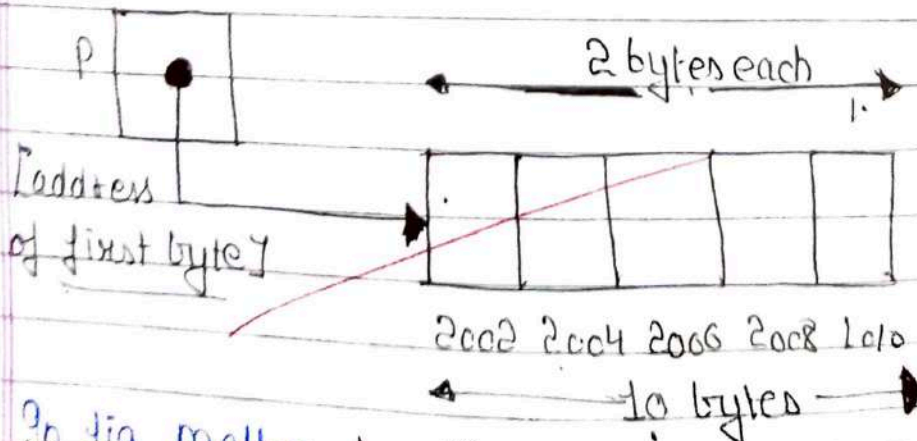 P
2 bytes each
[address
of first byte]
2002 2004 2006 2008 1010
10 bytes
In fig